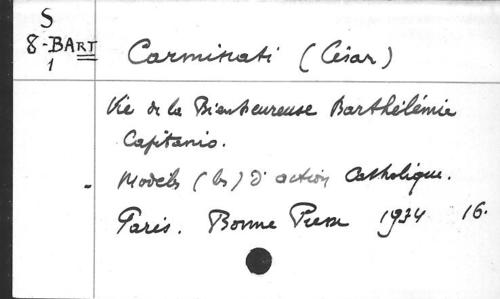 S
8-BART
1
Carminati (César)
Vie de la Bienheureuse Barthélémie
Capitanio.
- Modèles (les) d'action Catholique.
Paris. Bonne Presse 1934 16.